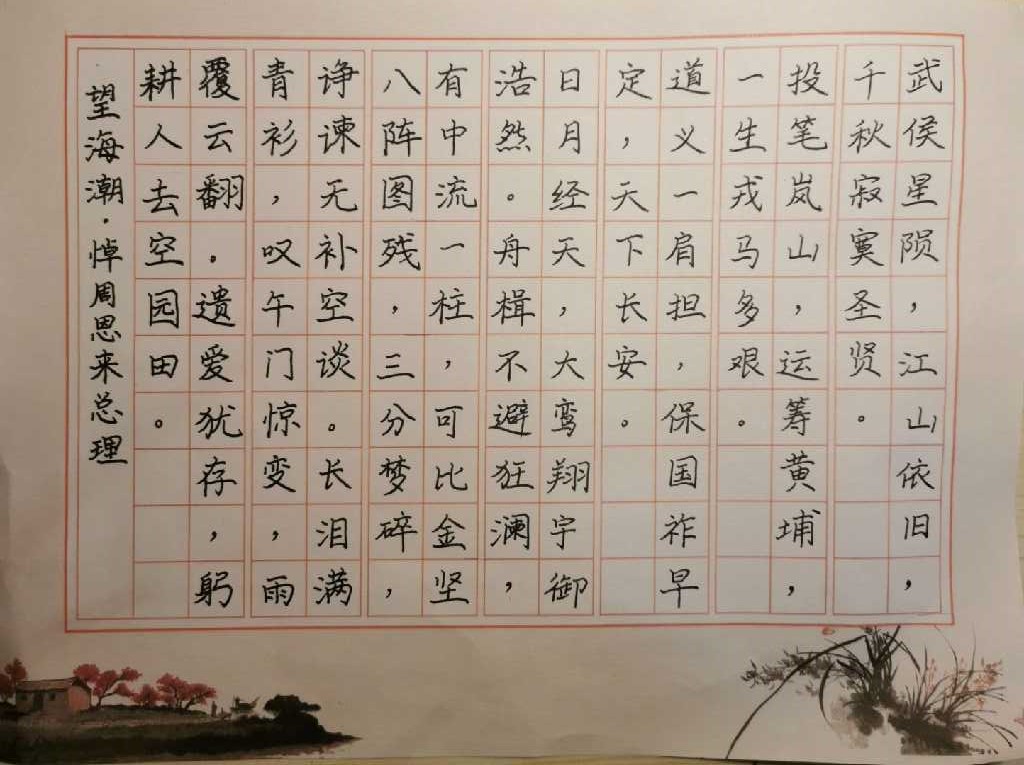 武侯星陨，江山依旧，
千秋寂寞圣贤。
投笔岚山，运筹黄埔，
一生戎马多艰。
道义一肩担，保国祚早
定，天下长安。
日月经天，大鸾翔宇御
浩然。舟楫不避狂澜，
有中流一柱，可比金坚
八阵图残，三分梦碎，
诤谏无补空谈。长泪满
青衫，叹午门惊变，雨
覆云翻。遗爱犹存，躬
耕人去空园田。
望海潮·悼周恩来总理